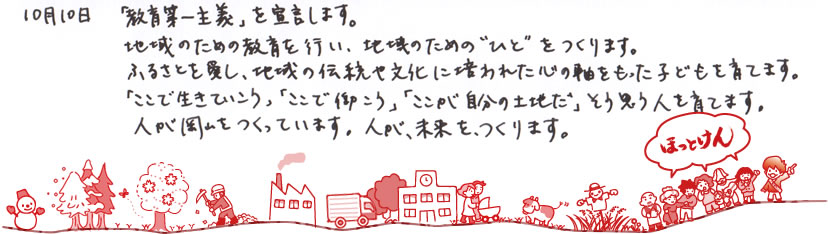 10月10日 「教育第一主義」を宣言します。
地域のための教育を行い、地域のための“ひと”をつくります。
ふるさとを愛し、地域の伝統や文化に培われた心の軸をもった子どもを育てます。
「ここで生きていこう」「ここで働こう」「ここが自分の土地だ」そう思う人を育てます。
人が岡山をつくっています。人が、未来を、つくります。
ほっとけん